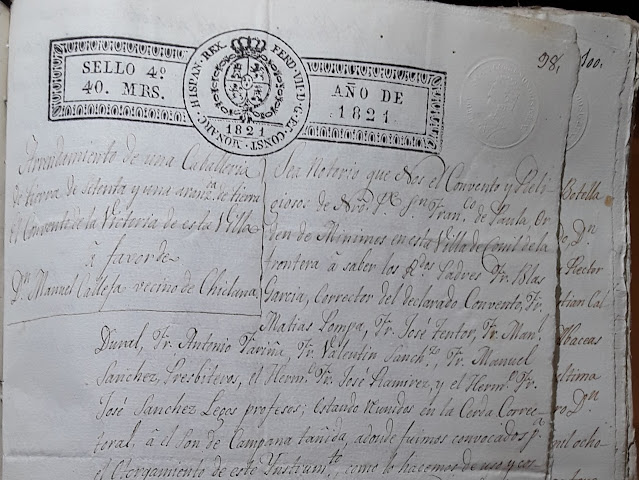 98,
100.
SELLO 4º
40. MRS.
HISPAN. REX. FERD. VII. D. G. ET CONST. MONARC.
1821
AÑO DE
1821
Arrendamiento de una Caballeria
de tierra de setenta y una aranz.s de tierra
el Convento de la Victoria de esta Villa
á favor de
Dn. Manuel Calleja vecino de Chiclana
Sea Notorio que Nos el Convento y Reli
giosos de Nro. Pe. Sn. Franco. de Paula, Or
den de Minimos en esta Villa de Conil de la
frontera á saber los Rdos Padres Fr. Blas
Garcia, Corrector del declarado Convento, Fr.
Matias Pompa, Fr. José Tentor, Fr. Manl.
Duval, Fr. Antonio Fariña, Fr. Valentin Sanchz., Fr. Manuel
Sanchez, Presbiteros, el Hermo. Fr. José Ramirez, y el Hermo. Fr.
José Sanchez Legos profesos; estando reunidos en la Cerda Correc
toral, á el Son de Campana tañida, adonde fuimos convocados pa.
el Otorgamiento de este Ynstrumto., como lo hacemos de uso y cos
Botella
Dn
Rector
tian Cal
baceas
ltima
Dn
ocho